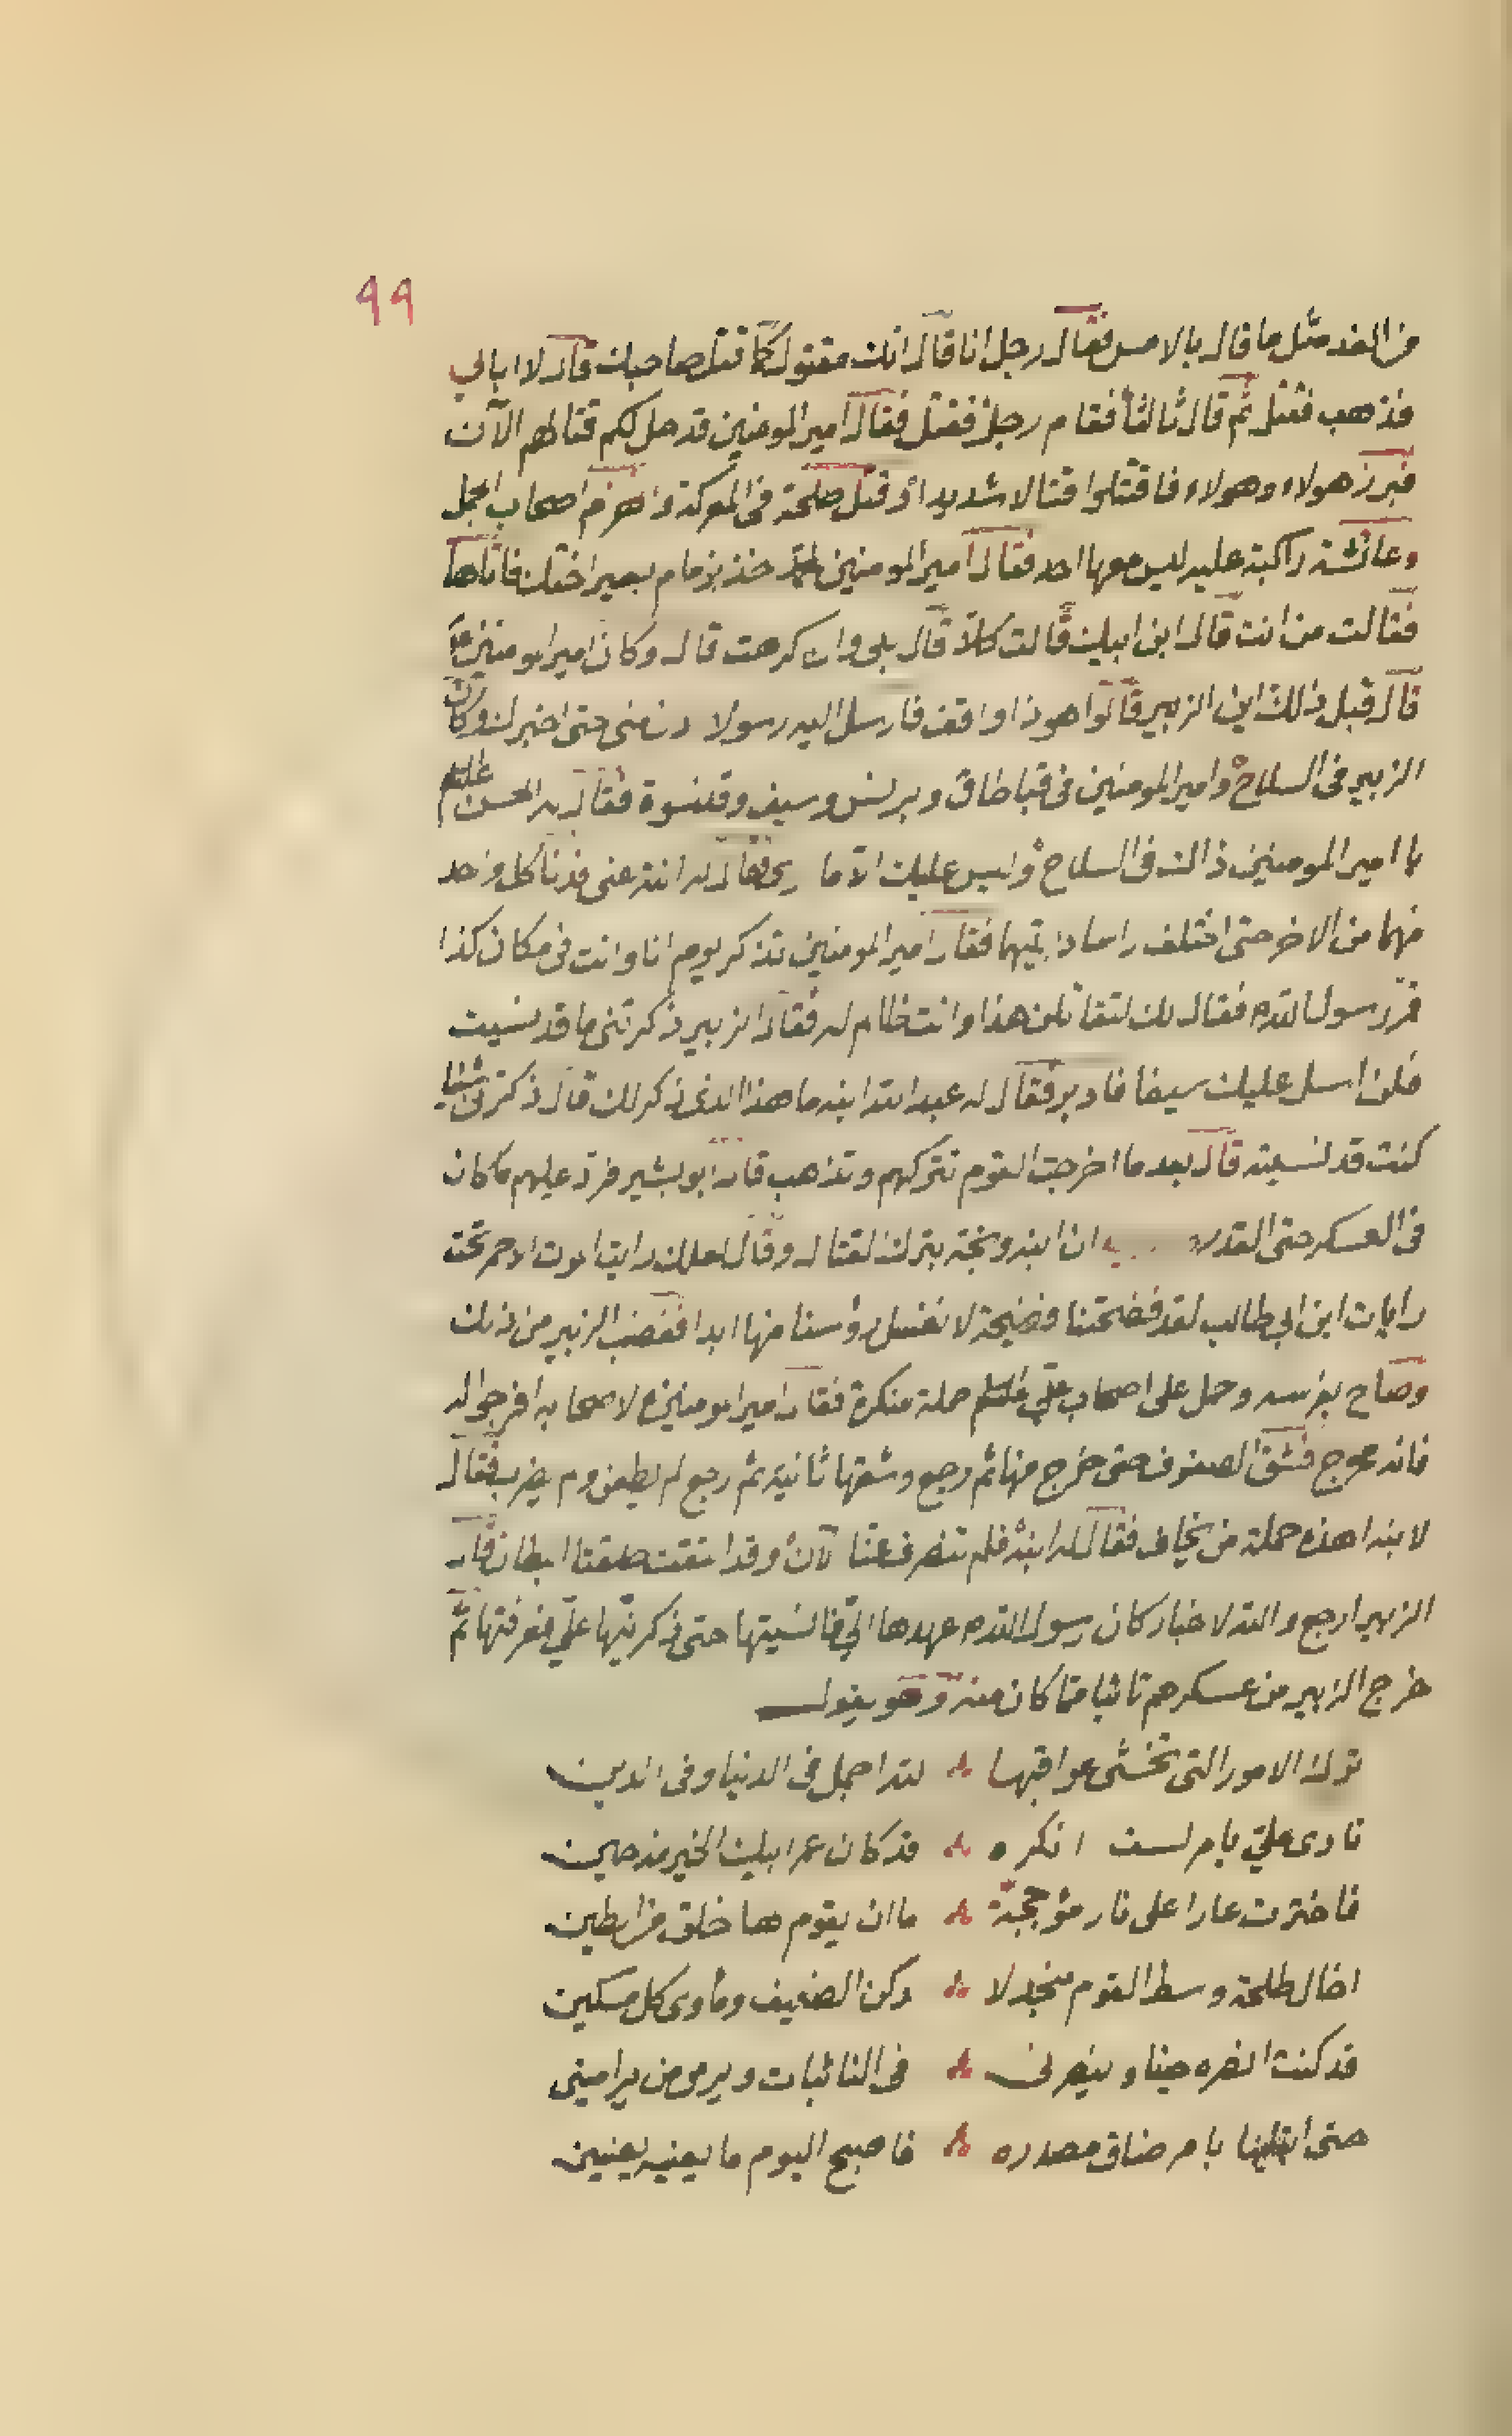 ٩٩
من الغد مثل ما قال بالامس فقال رجل انا قال انك مقتول كما قتل صاحبك قال لا ابالي
فذهب فقتل ثم قال ثالثا فقام رجل فقتل فقال امير المومنين قد حل لكم قتالهم الآن
فبرز هولاء وهولاء فاقتتلوا قتالا شديدا وقتل طلحة في المعركة وانهزم اصحاب الجمل
وعائشة راكبة عليه ليس معها احد فقال امير المومنين خذ بزمام بعير اختك فاتاها
فقالت من انت قال ابن ابيك قالت كلا قال بلى وان كرهت قال وكان امير المومنين ع
قال قبل ذلك اين الزبير قالوا هو ذا واقف فارسل اليه رسولا ادن منى حتى اخبرك وكان
الزبير في السلاح وامير المومنين في قبا طاق وبرنس وسيف وقلنسوة فقال له الحسن عليه السلم
يا امير المومنين ذاك في السلاح وليس عليك الا ما فقال له انته عنى فدنا كل واحد
منهما من الاخر حتى اختلف راسا دابتيهما فقال امير المومنين تذكر يوم انا وانت في مكان كذا
فمر رسول الله فقال لك لتقاتلن هذا وانت ظالم له فقال الزبير ذكرتني ما قد نسيت
فلن اسل عليك سيفا فادبر فقال له عبد الله ابنه ما هذا الذى ذكر لك قال ذكرنى شيئا
كنت قد نسيته قال بعد ما اخرجت القوم تتركهم وتذهب قال ابو بشير فرد عليهم ما كان
في العسكر حتى القدر ان ابنه وبخه بترك القتال وقال لعلك رايت الموت الاحمر تحت
رايات ابن ابي طالب لقد فضحتنا فضيحة لا نغسل رؤسنا منها ابدا فغضب الزبير من ذلك
وصاح بفرسه وحمل على اصحاب علي عليه السلم حملة منكرة فقال امير المومنين ع لاصحابه افرجوا له
فانه محرج فشق الصفوف حتى خرج منها ثم رجع وشقها ثانية ثم رجع لم يطعن ولم يضرب فقال
لابنه اهذه حملة من يخاف فقال له ابنه فلم تنصرف عنا الآن وقد التقت حلقتا البطان قال
الزبير ارجع والله لاخبار كان رسول الله عهدها الي فانسيتها حتى ذكرنيها علي فعرفتها ثم
خرج الزبير من عسكرهم تائبا مما كان منه وهو يقول
ترك الامور التى تخشى عواقبها لله اجمل في الدنيا وفى الدين
نادى علي بامر لست انكره قد كان عمر ابيك الخير مذ حين
فاخترت عارا على نار مؤججة ما ان يقوم لها خلق من الطين
اخال طلحة وسط القوم منجدلا ركن الضعيف ومأوى كل مسكين
قد كنت انصره حينا وينصرنى في النائبات ويرمى من يرامينى
حتى ابتلينا بامر ضاق مصدره فاصبح اليوم ما يعنيه يعنيني